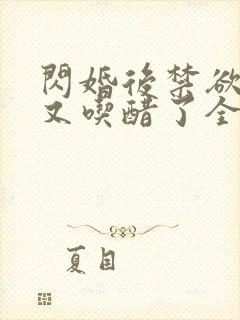 閃婚後禁欲
又喫醋了全
夏目